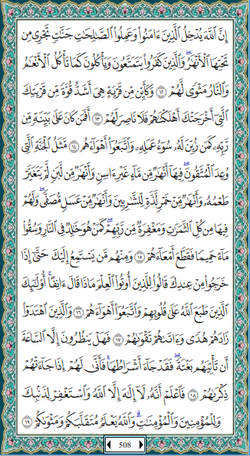 إِنَّ ٱللَّهَ يُدْخِلُ ٱلَّذِينَ ءَامَنُوا۟ وَعَمِلُوا۟ ٱلصَّٰلِحَٰتِ جَنَّٰتٍ تَجْرِى مِن
تَحْتِهَا ٱلْأَنْهَٰرُ ۖ وَٱلَّذِينَ كَفَرُوا۟ يَتَمَتَّعُونَ وَيَأْكُلُونَ كَمَا تَأْكُلُ ٱلْأَنْعَٰمُ
وَٱلنَّارُ مَثْوًى لَّهُمْ ١٢ وَكَأَيِّن مِّن قَرْيَةٍ هِىَ أَشَدُّ قُوَّةً مِّن قَرْيَتِكَ
ٱلَّتِىٓ أَخْرَجَتْكَ أَهْلَكْنَٰهُمْ فَلَا نَاصِرَ لَهُمْ ١٣ أَفَمَن كَانَ عَلَىٰ بَيِّنَةٍ مِّن
رَّبِّهِۦ كَمَن زُيِّنَ لَهُۥ سُوٓءُ عَمَلِهِۦ وَٱتَّبَعُوٓا۟ أَهْوَآءَهُم ١٤ مَّثَلُ ٱلْجَنَّةِ ٱلَّتِى
وُعِدَ ٱلْمُتَّقُونَ ۖ فِيهَآ أَنْهَٰرٌ مِّن مَّآءٍ غَيْرِ ءَاسِنٍ وَأَنْهَٰرٌ مِّن لَّبَنٍ لَّمْ يَتَغَيَّرْ
طَعْمُهُۥ وَأَنْهَٰرٌ مِّنْ خَمْرٍ لَّذَّةٍ لِّلشَّٰرِبِينَ وَأَنْهَٰرٌ مِّنْ عَسَلٍ مُّصَفًّى ۖ وَلَهُمْ
فِيهَا مِن كُلِّ ٱلثَّمَرَٰتِ وَمَغْفِرَةٌ مِّن رَّبِّهِمْ ۖ كَمَنْ هُوَ خَٰلِدٌ فِى ٱلنَّارِ وَسُقُوا۟
مَآءً حَمِيمًا فَقَطَّعَ أَمْعَآءَهُمْ ١٥ وَمِنْهُم مَّن يَسْتَمِعُ إِلَيْكَ حَتَّىٰٓ إِذَا
خَرَجُوا۟ مِنْ عِندِكَ قَالُوا۟ لِلَّذِينَ أُوتُوا۟ ٱلْعِلْمَ مَاذَا قَالَ ءَانِفًا ۚ أُو۟لَٰٓئِكَ
ٱلَّذِينَ طَبَعَ ٱللَّهُ عَلَىٰ قُلُوبِهِمْ وَٱتَّبَعُوٓا۟ أَهْوَآءَهُمْ ١٦ وَٱلَّذِينَ ٱهْتَدَوْا۟
زَادَهُمْ هُدًى وَءَاتَىٰهُمْ تَقْوَىٰهُمْ ١٧ فَهَلْ يَنظُرُونَ إِلَّا ٱلسَّاعَةَ
أَن تَأْتِيَهُم بَغْتَةً ۖ فَقَدْ جَآءَ أَشْرَاطُهَا ۚ فَأَنَّىٰ لَهُمْ إِذَا جَآءَتْهُمْ
ذِكْرَىٰهُمْ ١٨ فَٱعْلَمْ أَنَّهُۥ لَآ إِلَٰهَ إِلَّا ٱللَّهُ وَٱسْتَغْفِرْ لِذَنۢبِكَ
وَلِلْمُؤْمِنِينَ وَٱلْمُؤْمِنَٰتِ ۗ وَٱللَّهُ يَعْلَمُ مُتَقَلَّبَكُمْ وَمَثْوَىٰكُمْ ١٩
508